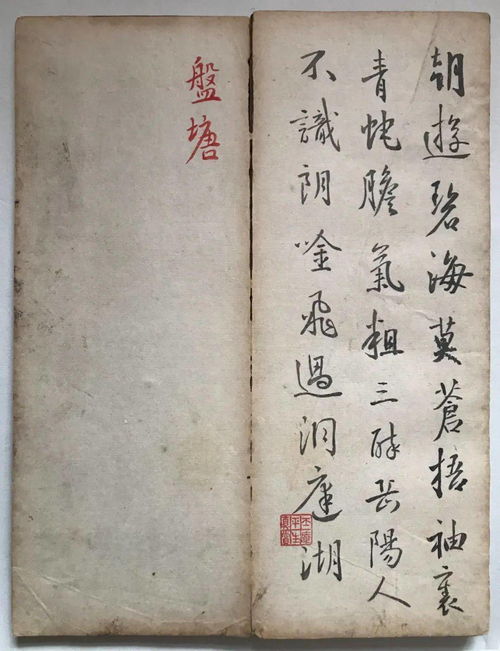 朝遊碧海莫蒼梧袖裏
青蛇膽氣粗三醉岳陽人
不識朗唫飛過洞庭湖
盤塘